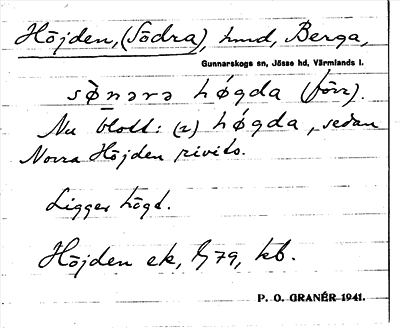 Höjden, (Södra), hmd, Berga,
Gunnarskogs sn, Jösse hd, Värmlands l.
sø̀nərə høgda (förr).
Nu blott: (2) høgda, sedan
Norra Höjden rivits.
Ligger högt.
Höjden ek, 79, kb.
P. O. GRANÉR 1941.